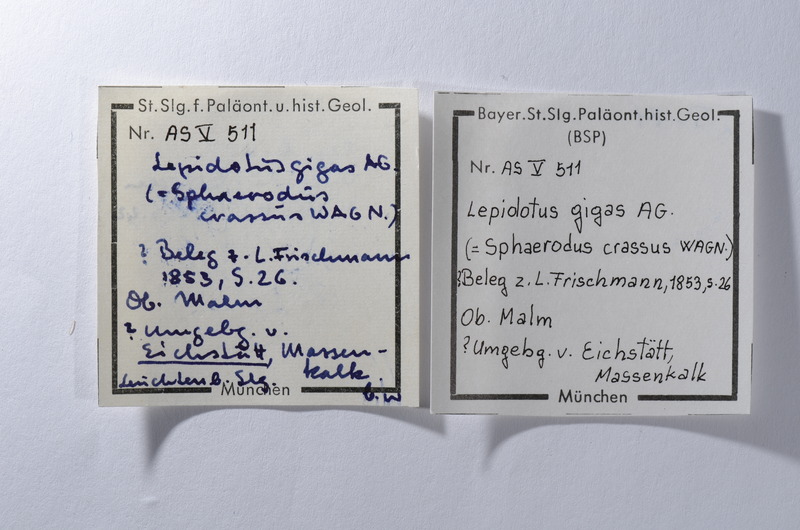 St. Slg. f. Paläont. u. hist. Geol.
Nr. AS V 511
Lepidotus gigas AG.
(= Sphaerodus
crassus WAGN.)
? Beleg z. L. Frischmann
1853, S. 26.
Ob. Malm
? Umgebg. v.
Eichstätt, Massen-
kalk
Leuchtenb. Slg.
München
Bayer. St. Slg. Paläont. hist. Geol.
(BSP)
Nr. AS V 511
Lepidotus gigas AG.
(= Sphaerodus crassus WAGN.)
?Beleg z. L. Frischmann, 1853, S. 26
Ob. Malm
? Umgebg. v. Eichstätt,
Massenkalk
München